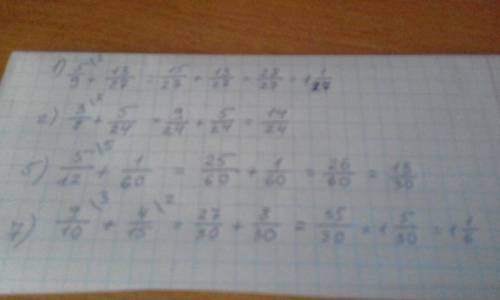 1) 5/9 \3 + 13/27 = 15/27 + 13/27 = 28/27 = 1 1/27
2) 3/8 \3 + 5/24 = 9/24 + 5/24 = 14/24
5) 5/12 \5 + 1/60 = 25/60 + 1/60 = 26/60 = 13/30
7) 9/10 \3 + 4/15 \2 = 27/30 + 8/30 = 35/30 = 1 5/30 = 1 1/6